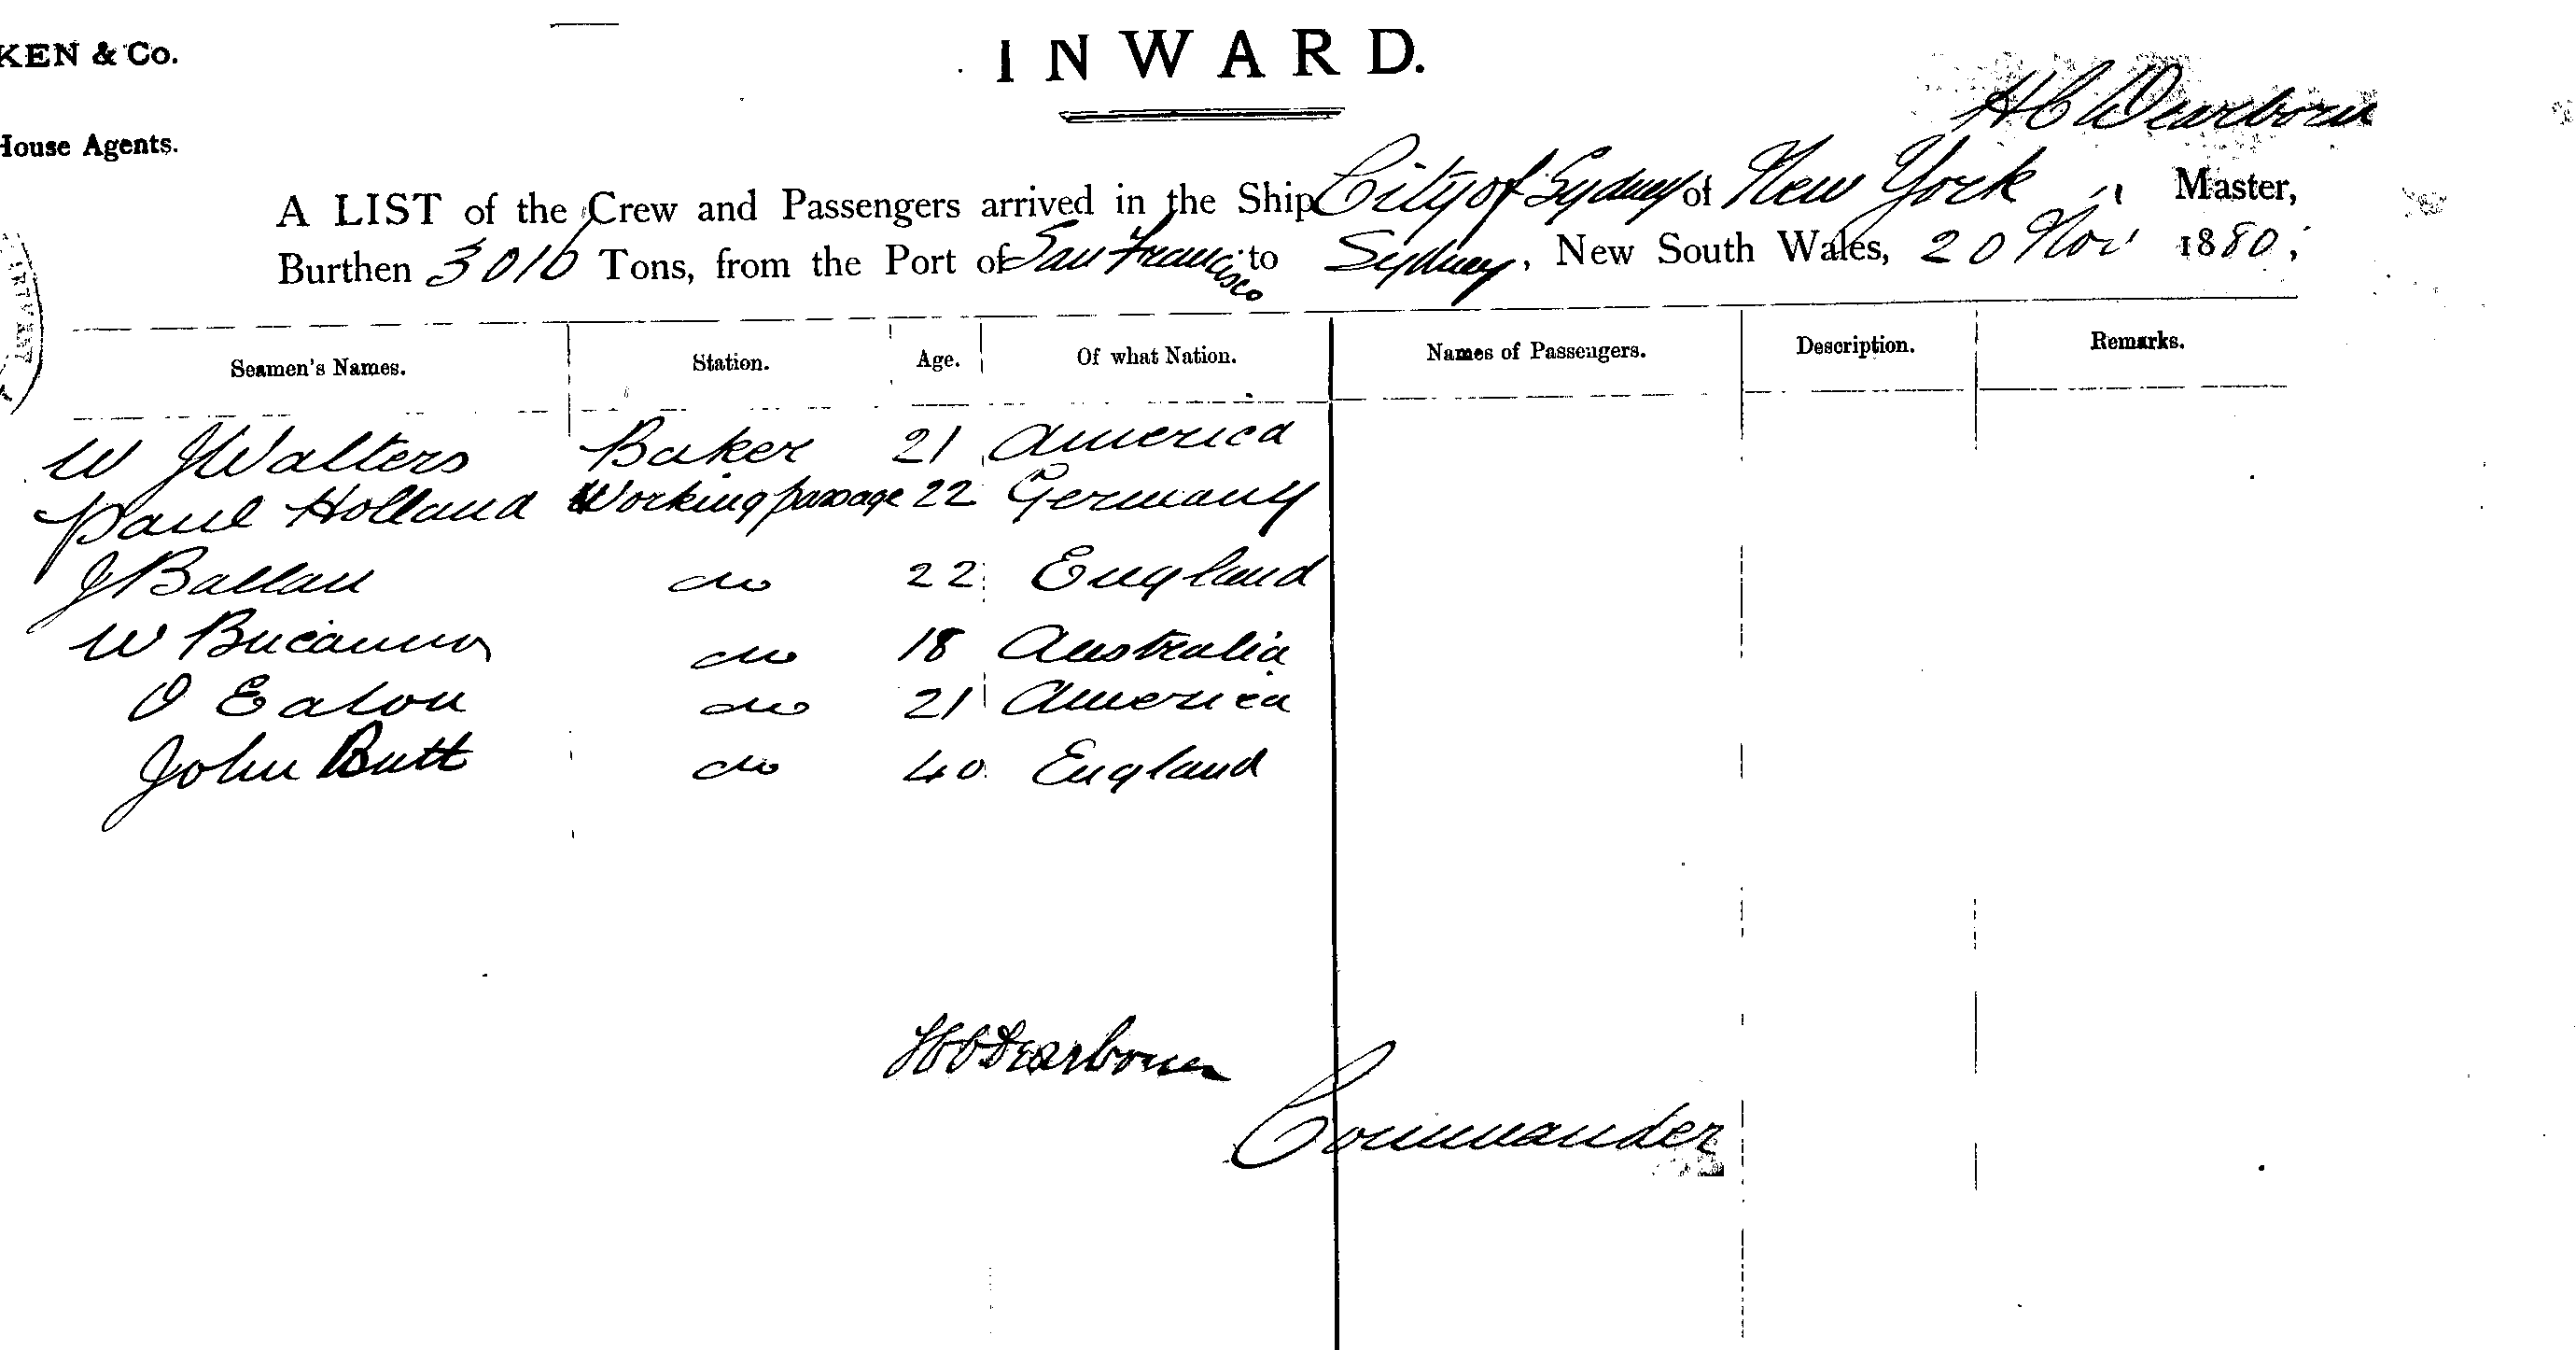 KEN & Co.
INWARD.
H C Dearborn
House Agents.
A LIST of the Crew and Passengers arrived in the Ship City of Sydney of New York " Master,
Burthen 3016 Tons, from the Port of San Francisco to Sydney, New South Wales, 20 Nov 1880;
Seamen's Names. Station. Age. Of what Nation. Names of Passengers. Description. Remarks.
W J Walters Baker 21 America
Paul Holland Working passage 22 Germany
J Ballau do 22 England
W Bucannon do 18 Australia
O Eaton do 21 America
John Butt do 40 England
H C Dearborn
Commander